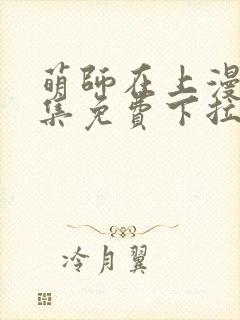 萌师在上漫
集免费下拉
冷月翼